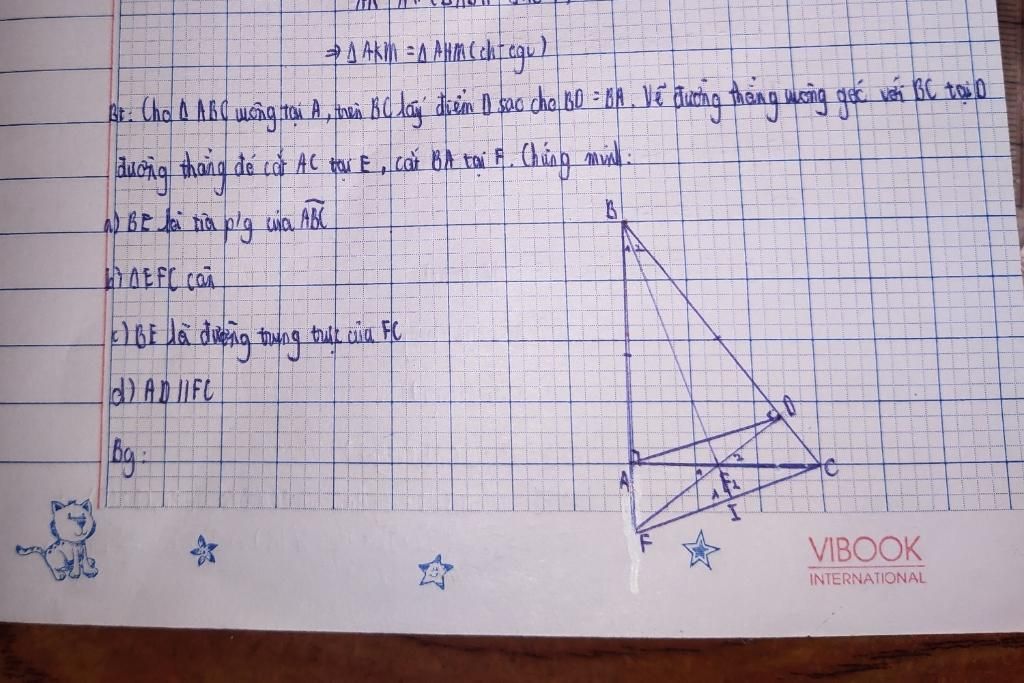 ⇒ Δ AKM = Δ AHM (ch-cgv)
Bt: Cho Δ ABC vuông tại A, trên BC lấy điểm D sao cho BD = BA. Vẽ đường thẳng vuông góc với BC tại D
đường thẳng đó cắt AC tại E, cắt BA tại F. Chứng minh:
a) BE là tia p/g của ABC
b) Δ EFC cân
c) BE là đường trung trực của FC
d) AD // FC
Bg:
B
1 2
D
A
2
C
1
E
1 2
I
F
VIBOOK
INTERNATIONAL